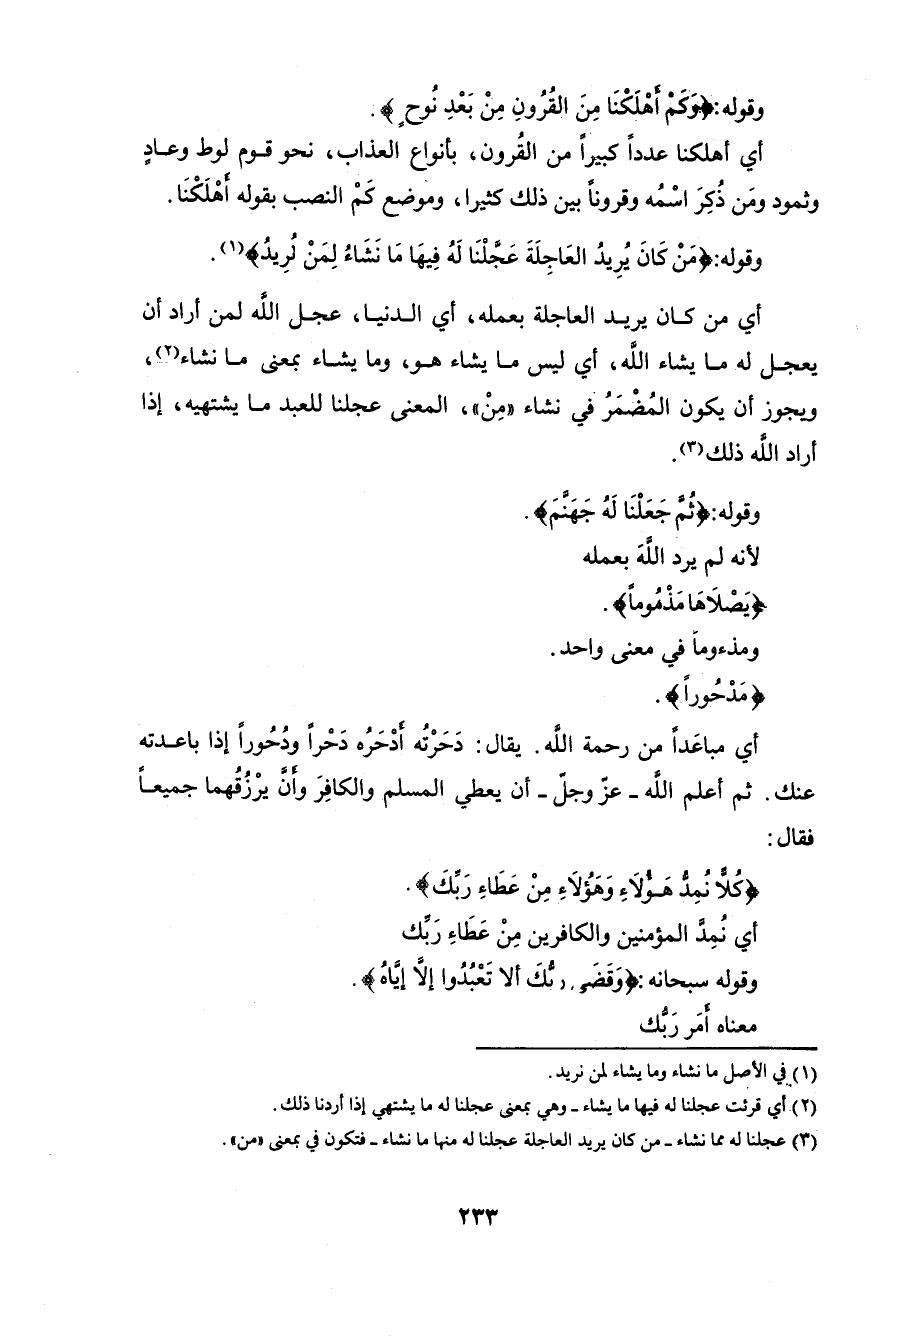 وقوله: ﴿وَكَمْ أَهْلَكْنَا مِنَ القُرُونِ مِنْ بَعْدِ نُوحٍ﴾.
أي أهلكنا عدداً كبيراً من القُرون، بأنواع العذاب، نحو قوم لوط وعادٍ
وثمود ومَن ذُكِرَ اسْمُه وقروناً بين ذلك كثيرا، وموضع كَمْ النصب بقوله أَهْلَكْنَا.
وقوله: ﴿مَنْ كَانَ يُرِيدُ العَاجِلَةَ عَجَّلْنَا لَهُ فِيهَا مَا نَشَاءُ لِمَنْ نُرِيدُ﴾(١).
أي من كان يريد العاجلة بعمله، أي الدنيا، عجل اللَّه لمن أراد أن
يعجل له ما يشاء اللَّه، أي ليس ما يشاء هو، وما يشاء بمعنى ما نشاء(٢)،
ويجوز أن يكون المُضْمَرُ في نشاء «مِنْ»، المعنى عجلنا للعبد ما يشتهيه، إذا
أراد اللَّه ذلك(٣).
وقوله: ﴿ثُمَّ جَعَلْنَا لَهُ جَهَنَّمَ﴾.
لأنه لم يرد اللَّهَ بعمله
﴿يَصْلَاهَا مَذْمُوماً﴾.
ومذءوماً في معنى واحد.
﴿مَدْحُوراً﴾.
أي مباعَداً من رحمة اللَّه. يقال: دَحَرْتُه أَدْحَرُه دَحْراً ودُحُوراً إذا باعدته
عنك. ثم أعلم اللَّه ـ عزّ وجلّ ـ أن يعطي المسلم والكافِرَ وأَنَّ يرْزُقُهما جميعاً
فقال:
﴿كُلًّا نُمِدُّ هَؤُلَاءِ وَهَؤُلَاءِ مِنْ عَطَاءِ رَبِّكَ﴾.
أي نُمِدَّ المؤمنين والكافرين مِنْ عَطَاءِ رَبِّك
وقوله سبحانه: ﴿وَقَضَى رَبُّكَ ألا تَعْبُدُوا إلَّا إيَّاهُ﴾.
معناه أَمَر رَبُّك
(١) في الأصل ما نشاء وما يشاء لمن نريد.
(٢) أي قرئت عجلنا له فيها ما يشاء ـ وهي بمعنى عجلنا له ما يشتهي إذا أردنا ذلك.
(٣) عجلنا له مما نشاء ـ من كان يريد العاجلة عجلنا له منها ما نشاء ـ فتكون في بمعنى «من».
٢٣٣